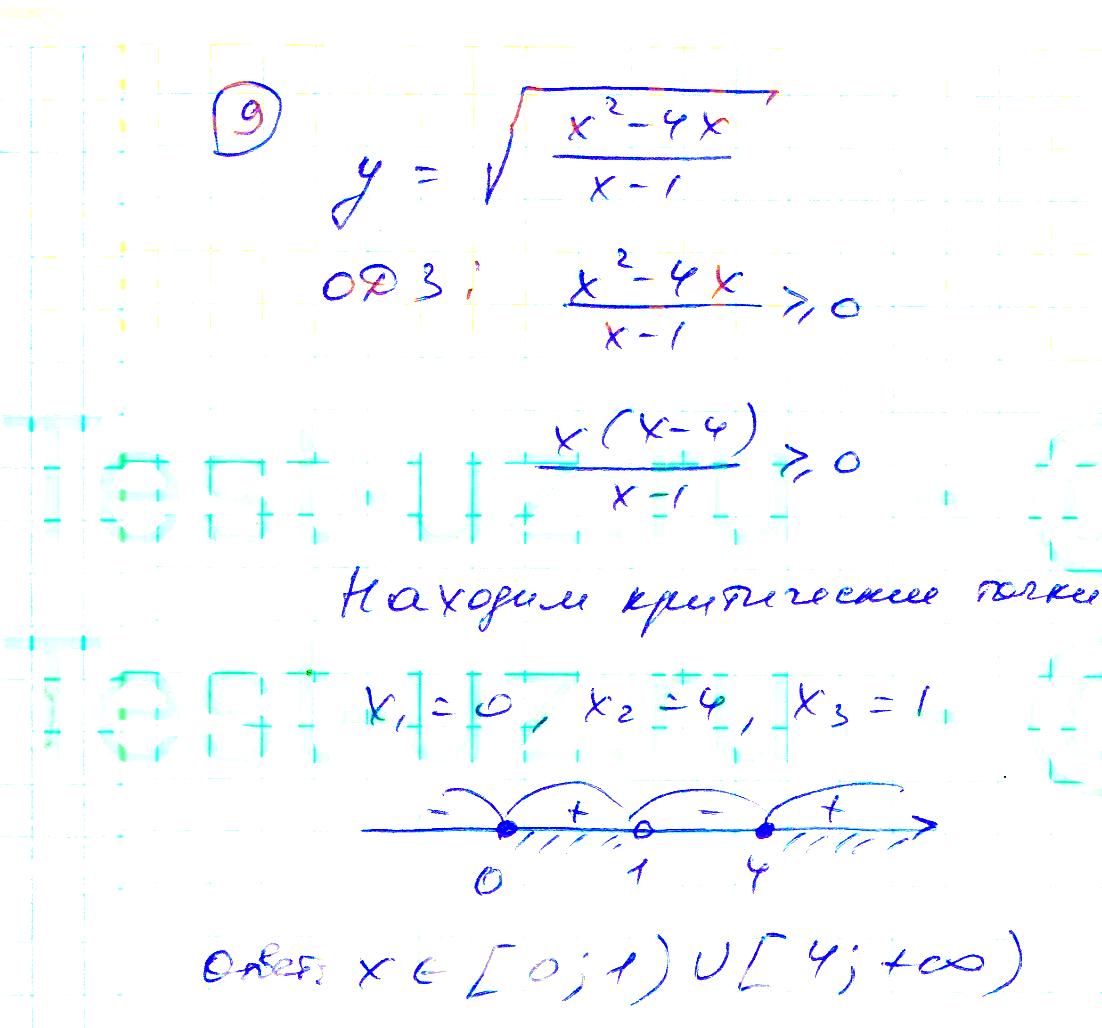 9
y = √((x² - 4x)/(x - 1))
ОДЗ: (x² - 4x)/(x - 1) ⩾ 0
x(x-4)/(x-1) ⩾ 0
Находим критические точки
x₁ = 0, x₂ = 4, x₃ = 1
- + - +
0 1 4
Ответ: x ∈ [0; 1) ∪ [4; +∞)